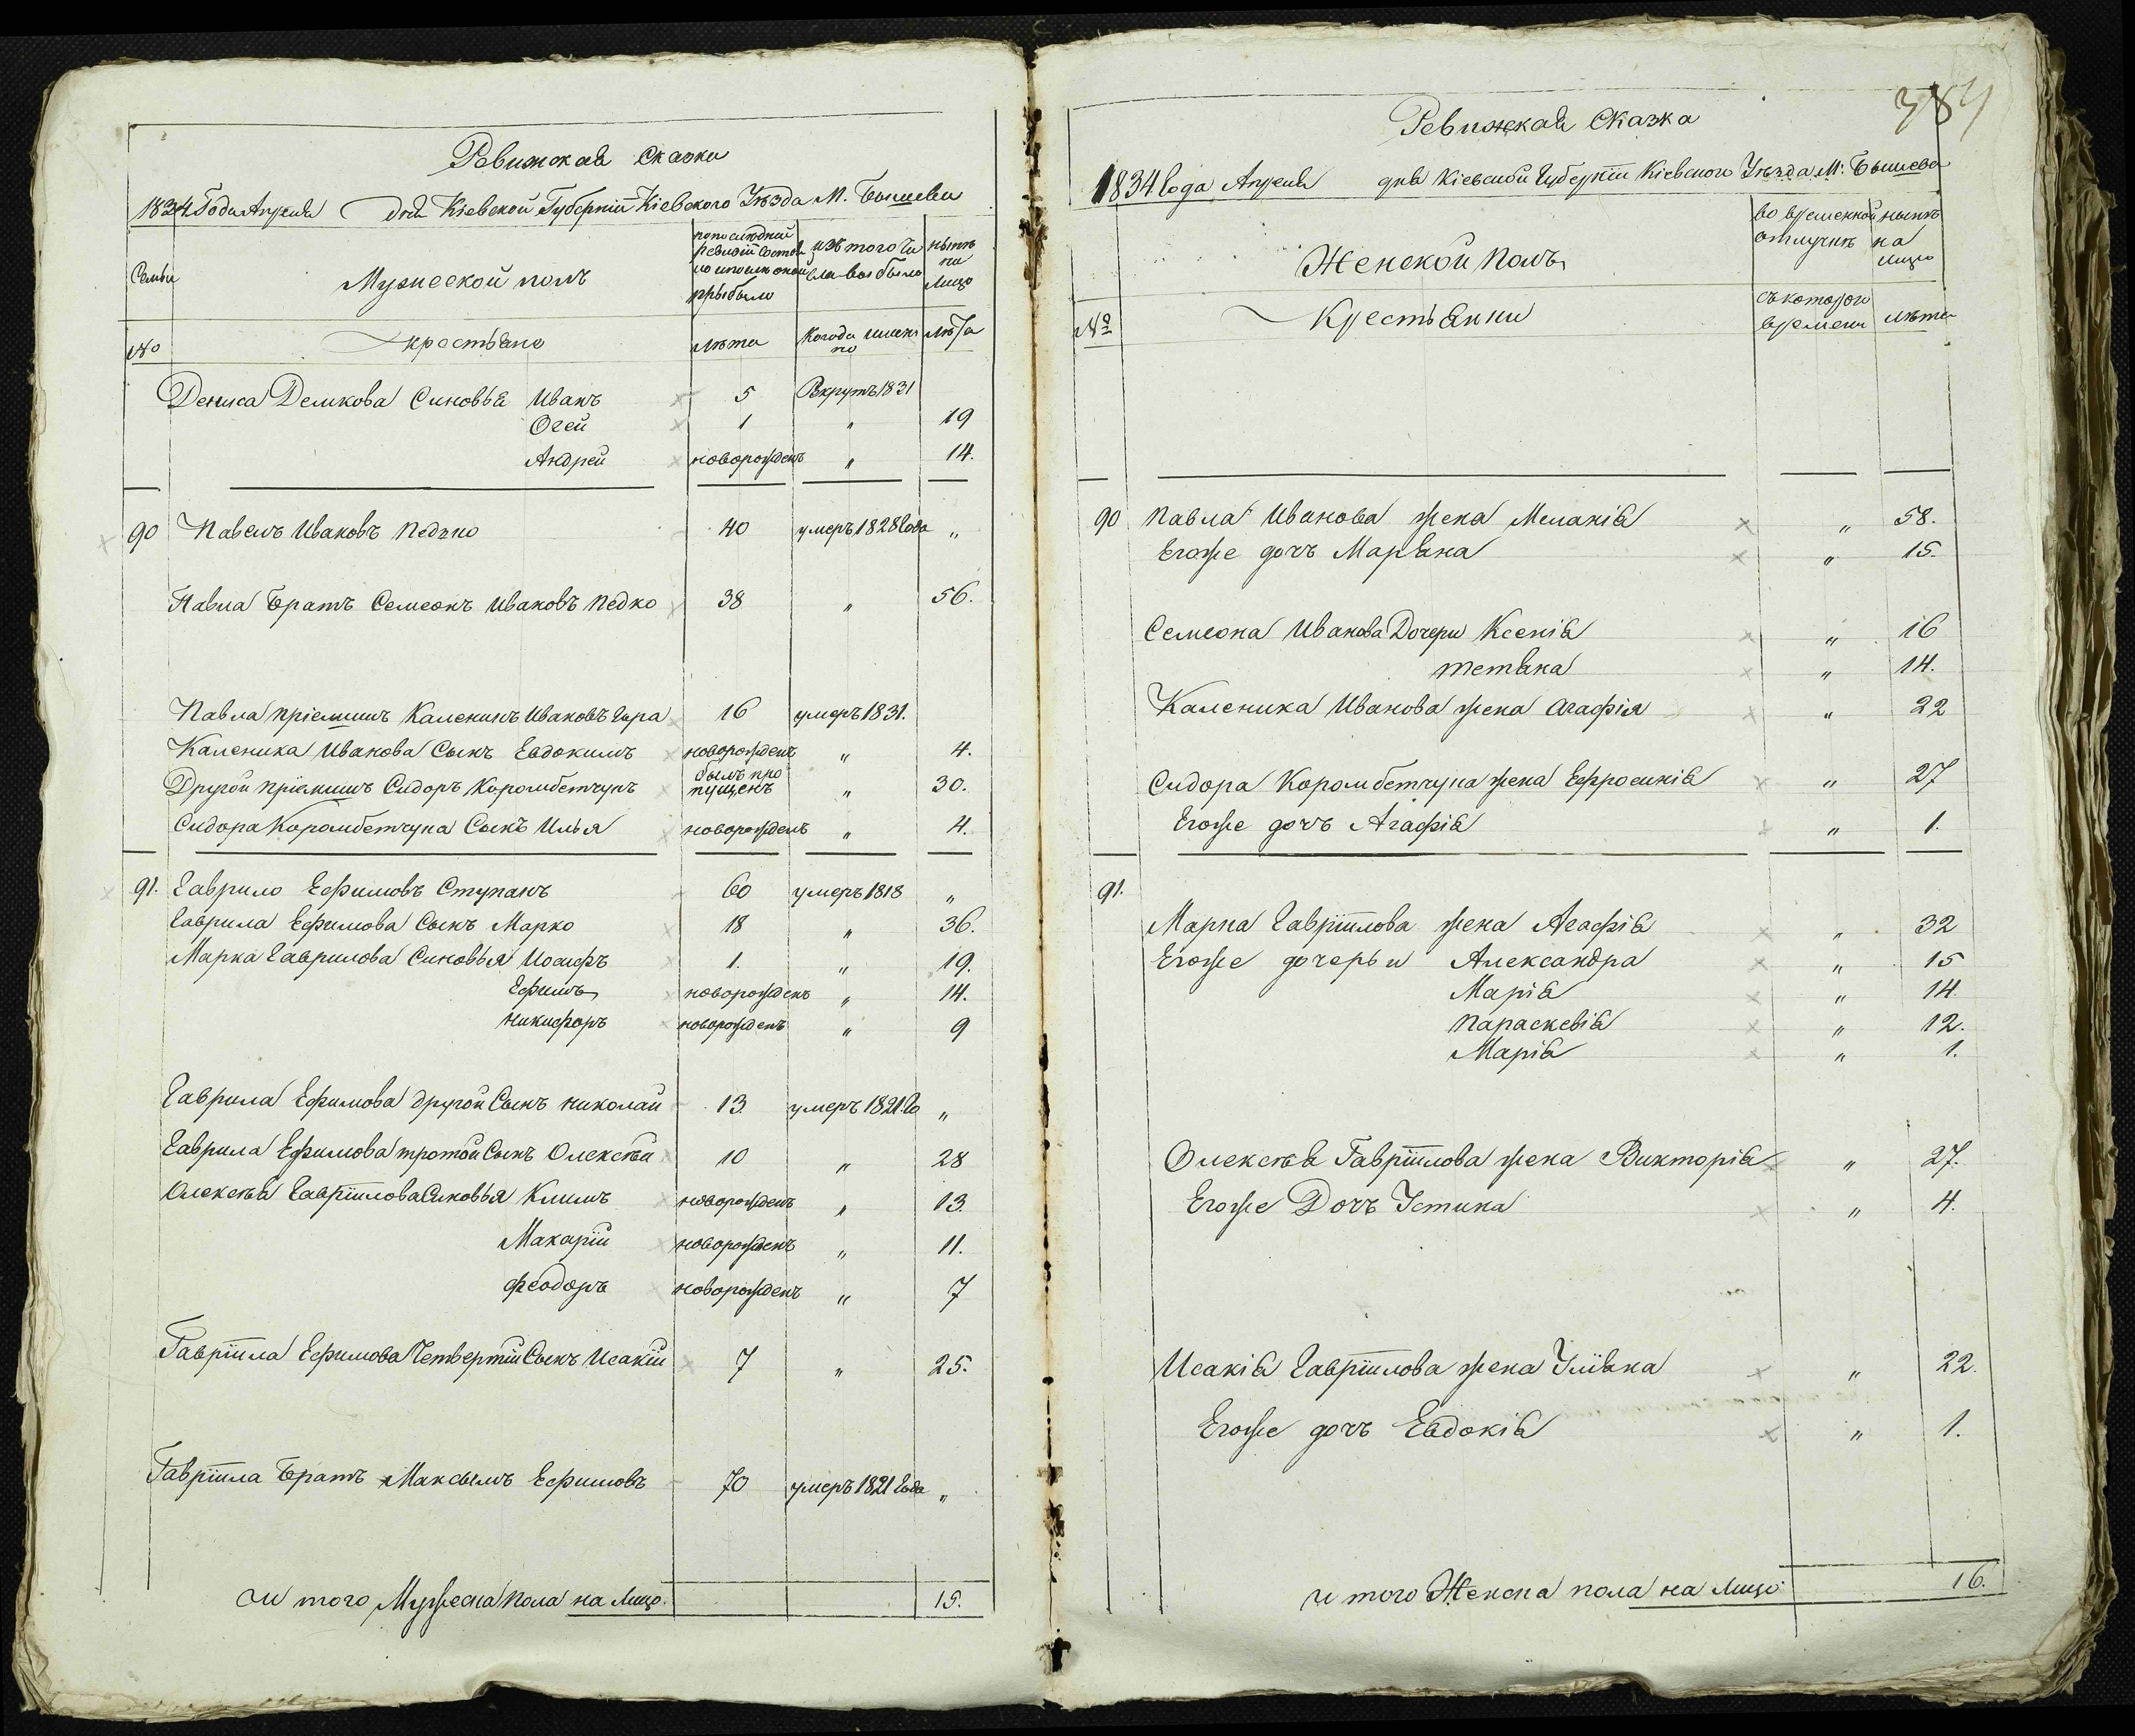 Ревижская сказка
1834 Года Апреля дня Кіевской Губерніи Кіевского Уѣзда М. Бышева
Семьи
Мужеской полъ
по последней ревизіи состояло и после оной прыбыло
изъ того числа выбыло
ныне на лицо
№
крестьяне
лѣта
Когода именно
лѣта
Дениса Демкова Синовья Иванъ 5 Рекрутъ 1831
Огей 1 " 19
Андрей новорожденъ " 14.
90 Павелъ Ивановъ Педько 40 умеръ 1828 Года "
Павла Братъ Семеонъ Ивановъ Педко 38 " 56.
Павла пріемишъ Каленикъ Ивановъ Гора 16 умеръ 1831.
Каленика Иванова Сынъ Евдокимъ новорожденъ " 4.
Другой пріемишъ Сидоръ Коромбетчукъ былъ пропущенъ " 30.
Сидора Коромбетчука Сынъ Илья новорожденъ " 4.
91. Гаврило Ефимовъ Ступакъ 60 умеръ 1818 "
Гаврила Ефимова Сынъ Марко 18 " 36.
Марка Гаврилова Синовья Иосифъ 1. " 19.
Ефимъ новорожденъ " 14.
Никифоръ новорожденъ " 9
Гаврила Ефимова другой Сынъ Николай 13. умеръ 1821 Го "
Гаврила Ефимова третой Сынъ Олексѣй 10 " 28
Олексѣя Гавріилова Синовья Климъ новорожденъ " 13.
Макарій новорожденъ " 11.
Феодоръ новорожденъ " 7
Гавріила Ефимова Четвертій Сынъ Исакій 7 " 25.
Гавріила Братъ Максымъ Ефимовъ 70 умеръ 1821 Года "
и того Мужеска пола на лицо. 15.
384
Ревижская Сказка
1834 Года Апреля дня Кіевской Губерніи Кіевского Уѣзда М. Бышева
Женской полъ
во временной отлучкѣ
нынѣ на лицо
№
Крестьянки
съ которого времени
лѣта
90 Павла Иванова жена Меланія " 58.
Егоже дочъ Марьяна " 15.
Семеона Иванова Дочери Ксенія " 16
Тетьяна " 14.
Каленика Иванова жена Агафія " 22
Сидора Коромбетчука жена Ефросинія " 27
Егоже дочъ Агафія " 1.
91.
Марка Гавріилова жена Агафія " 32
Егоже дочерьи Александра " 15
Марія " 14.
Параскевія " 12.
Марія " 1.
Олексѣя Гавріилова жена Викторія " 27.
Егоже Дочъ Устина " 4.
Исакія Гавріилова жена Уліяна " 22.
Егоже дочъ Евдокія " 1.
и того Женска пола на лицо 16.